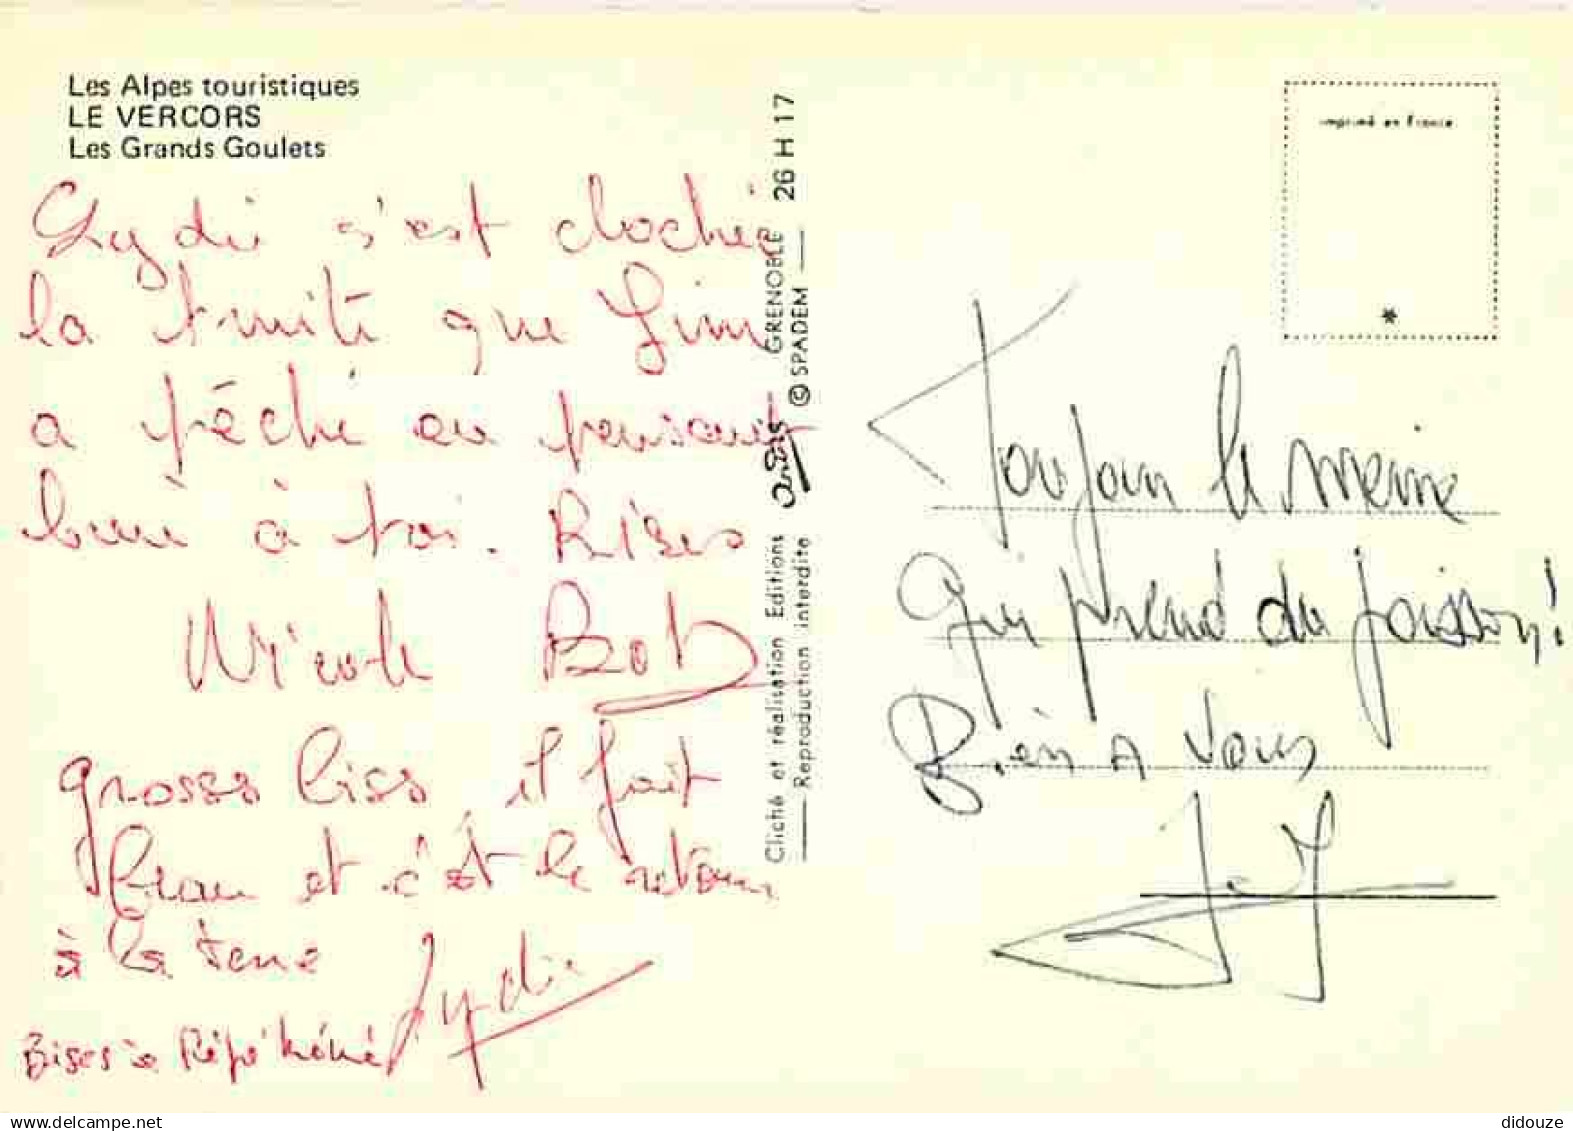 Les Alpes touristiques
LE VERCORS
Les Grands Goulets
Lydie s'est clochée
la truite que Jim
a pêché en pensant
bien à toi. Bises
Nicole Bob
grosses bises, il fait
beau et c'est le retour
à la terre
Lydie
Bises à Pépé Mémé
Cliché et réalisation Editions andis GRENOBLE 26 H 17
Reproduction interdite © SPADEM
imprimé en France
*
Toujours le même
Qui prend du poisson!
Bien A Vous